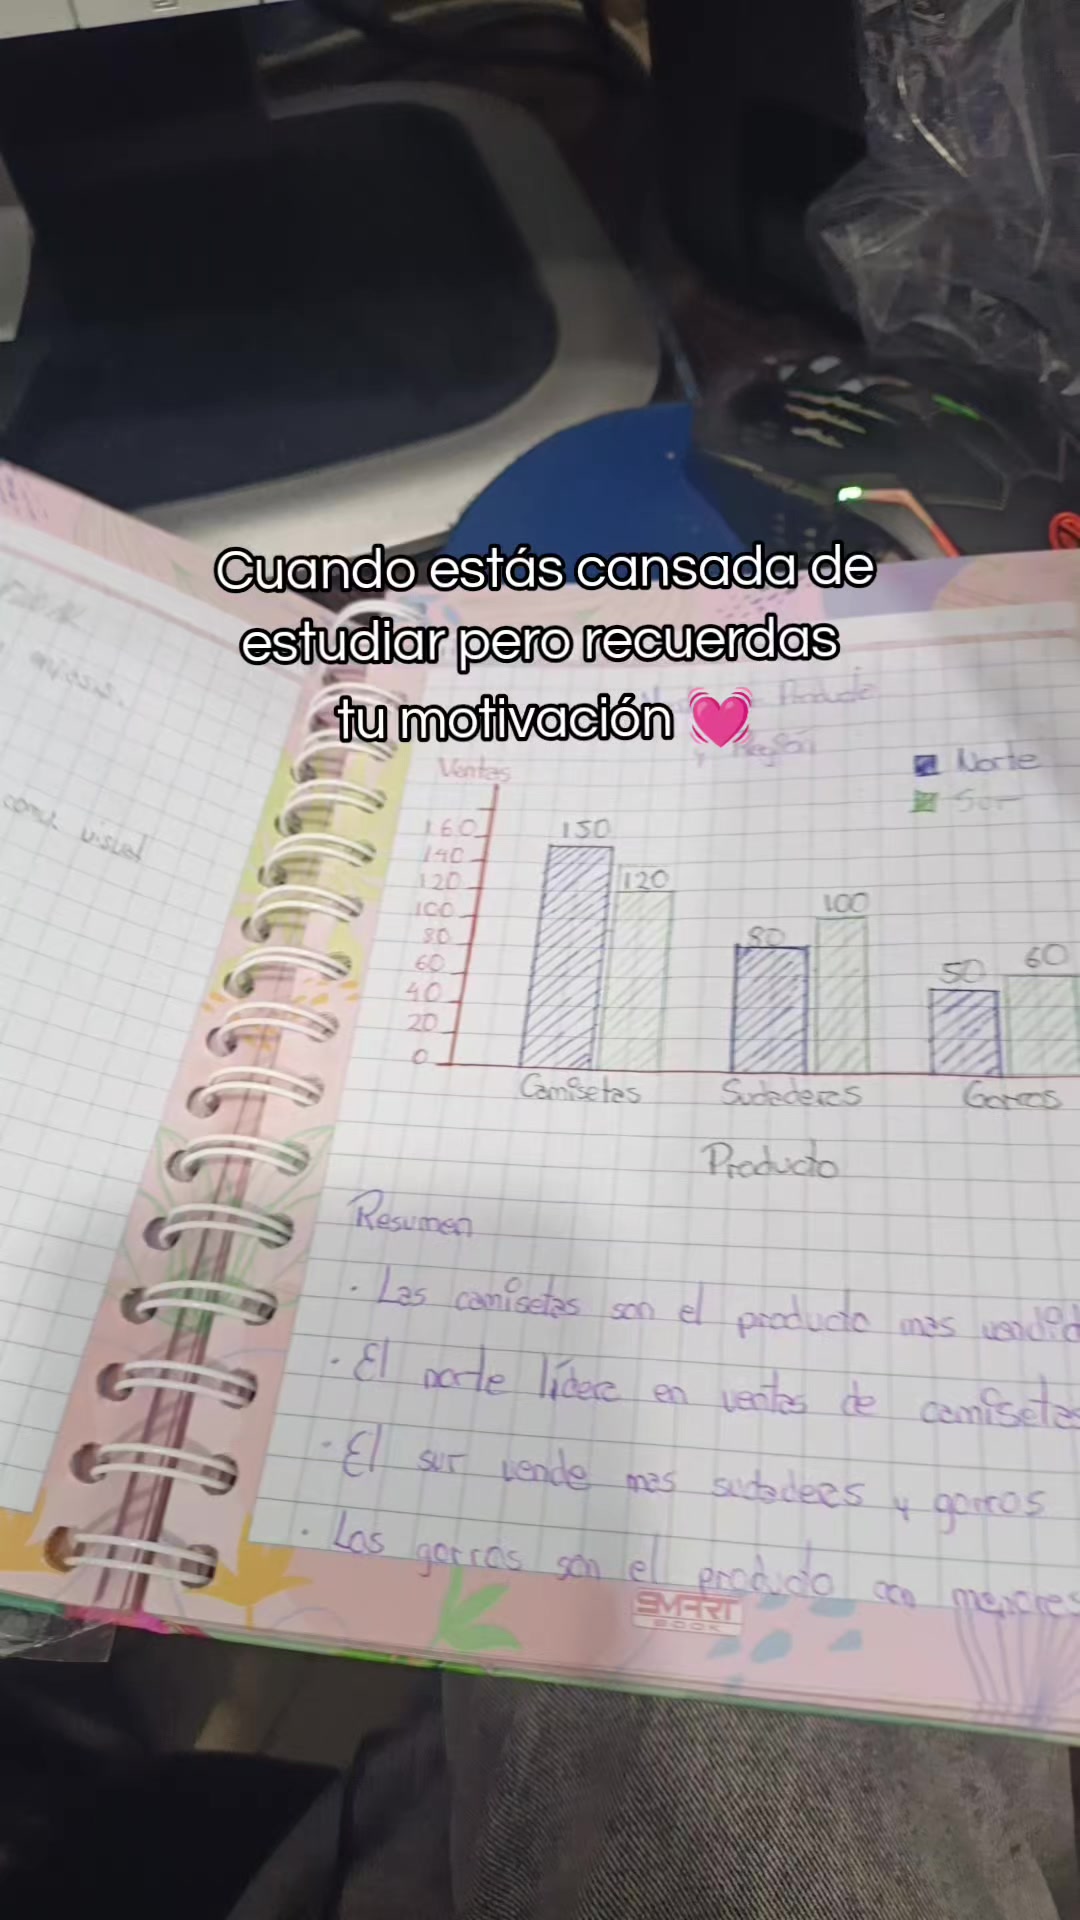 Cuando estás cansada de
estudiar pero recuerdas
tu motivación 💓
Producto
y Región
Ventas
Norte
Sur
160
140
120
100
80
60
40
20
0
150
120
80
100
50
60
Camisetas
Sudaderas
Gorros
Producto
Resumen
· Las camisetas son el producto mas vendid
· El norte lidera en ventas de camisetas
· El sur vende mas sudaderas y gorros
· Las gorras son el producto con menores
SMART
BOOK
visual